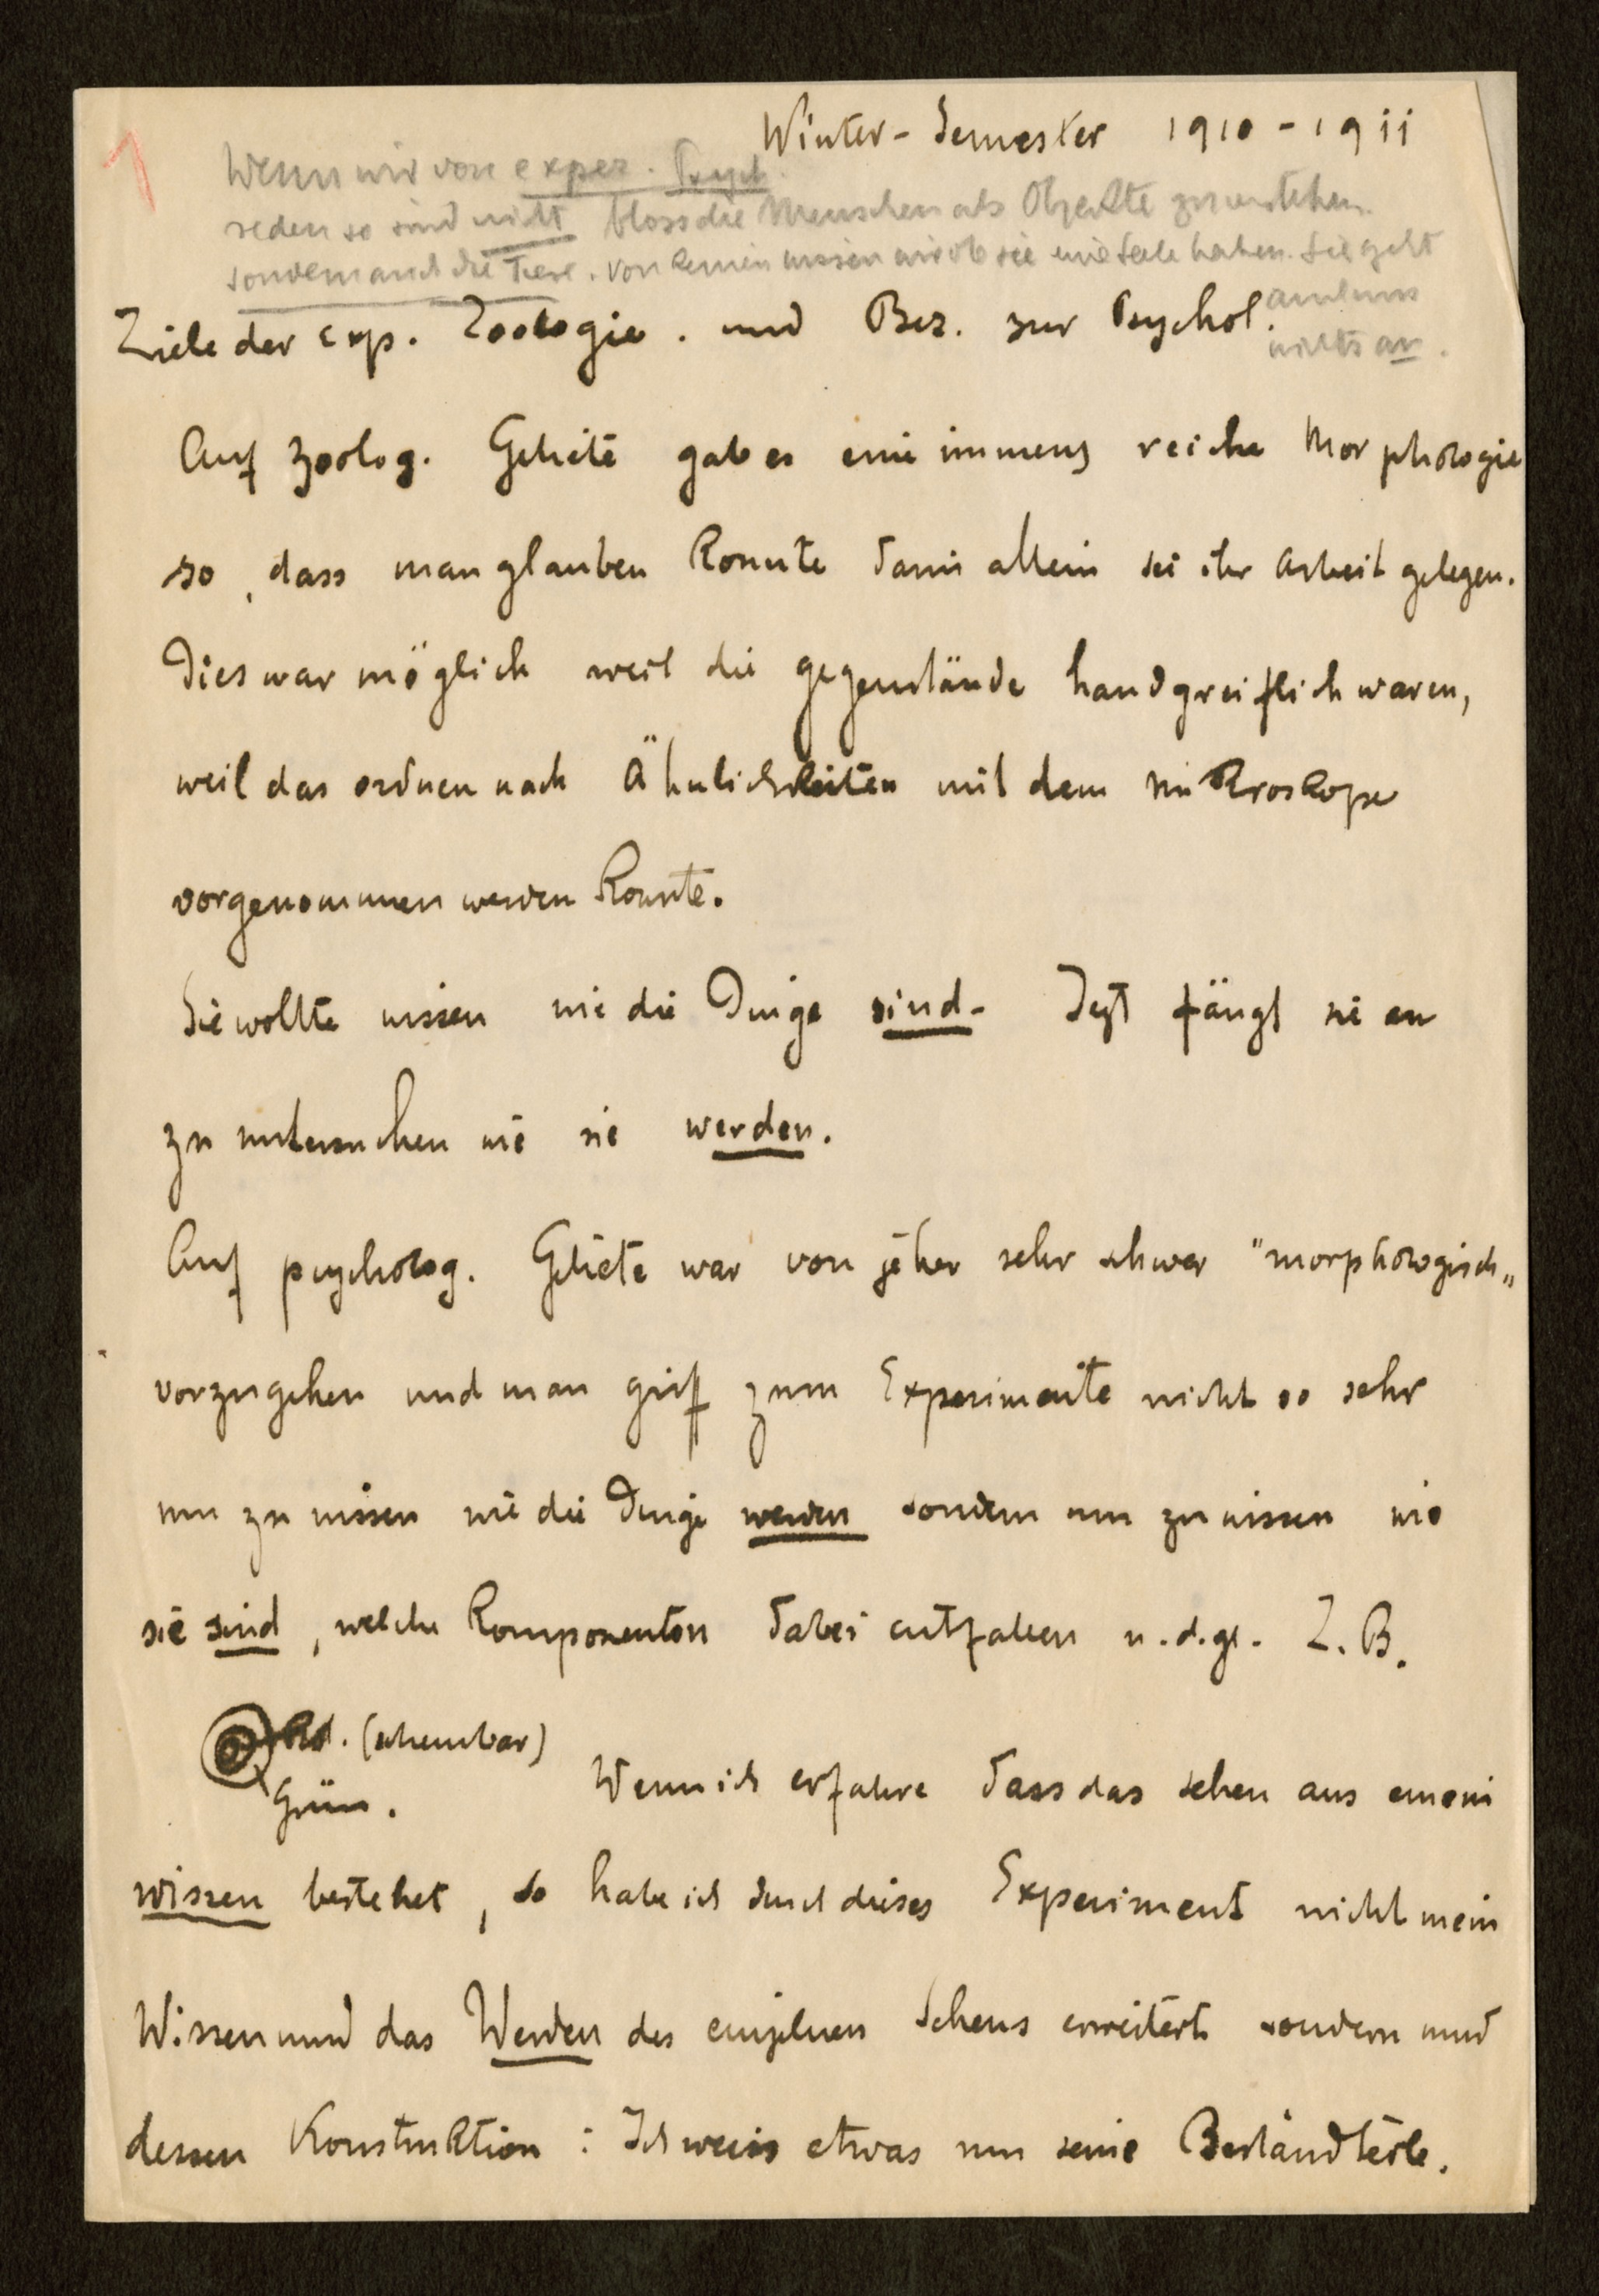 1
Winter-Semester 1910-1911
Wenn wir von exper. Psych.
reden so sind nicht bloss die Menschen als Objekte zu verstehen
sondern auch die Tiere. Von keinen wissen wir ob sie eine Seele haben. Sie geht
uns
nichts an.
Ziele der exp. Zoologie. und Bez. zur Psychol.
Auf zoolog. Gebiete gab es eine immens reiche Morphologie
so, dass man glauben konnte darin allein sei ihr Arbeit gelegen.
Dies war möglich weil die gegenstände handgreiflich waren,
weil das ordnen nach Ähnlichkeiten mit dem mikroskope
vorgenommen werden konnte.
Sie wollte wissen wie die Dinge sind- Jezt fängt sie an
zu untersuchen wie sie werden.
Auf psycholog. Gebiete war von jeher sehr schwer "morphologisch„
vorzugehen und man griff zum Experimente nicht so sehr
um zu wissen wie die Dinge werden sondern um zu wissen wie
sie sind, welche Komponenten dabei entfallen u.d.gl. Z.B.
Rot. (scheinbar)
Grün.
Wenn ich erfahre dass das sehen aus einem
wissen bestehet, so habe ich durch dieses Experiment nicht mein
Wissen und das Werden des einzelnen Sehens erweitert sondern und
dessen Konstruktion: Ich weiss etwas um seine Bestandteile.